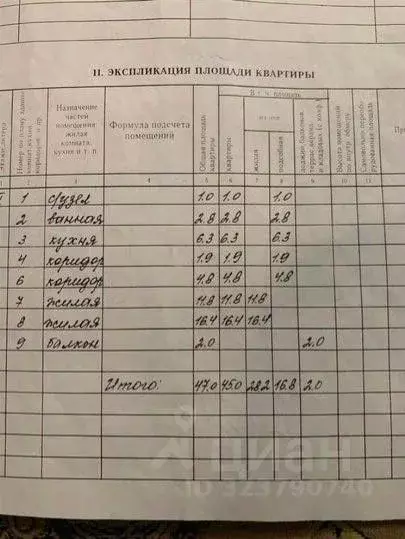 II. ЭКСПЛИКАЦИЯ ПЛОЩАДИ КВАРТИРЫ
Назначение частей помещения: жилая комната, кухня и т. п.
Формула подсчета помещений
Общая площадь квартиры
В т. ч. площадь
квартиры
из нее
жилая
подсобная
лоджий, балконов,
Высота помещений по внутр. обмеру
1 с/узел 1.0 1.0 1.0
2 ванная 2.8 2.8 2.8
3 кухня 6.3 6.3 6.3
4 коридор 1.9 1.9 1.9
6 коридор 4.8 4.8 4.8
7 жилая 11.8 11.8 11.8
8 жилая 16.4 16.4 16.4
9 балкон 2.0 2.0
Итого: 47.0 45.0 28.2 16.8 2.0
циан
ID 323790740